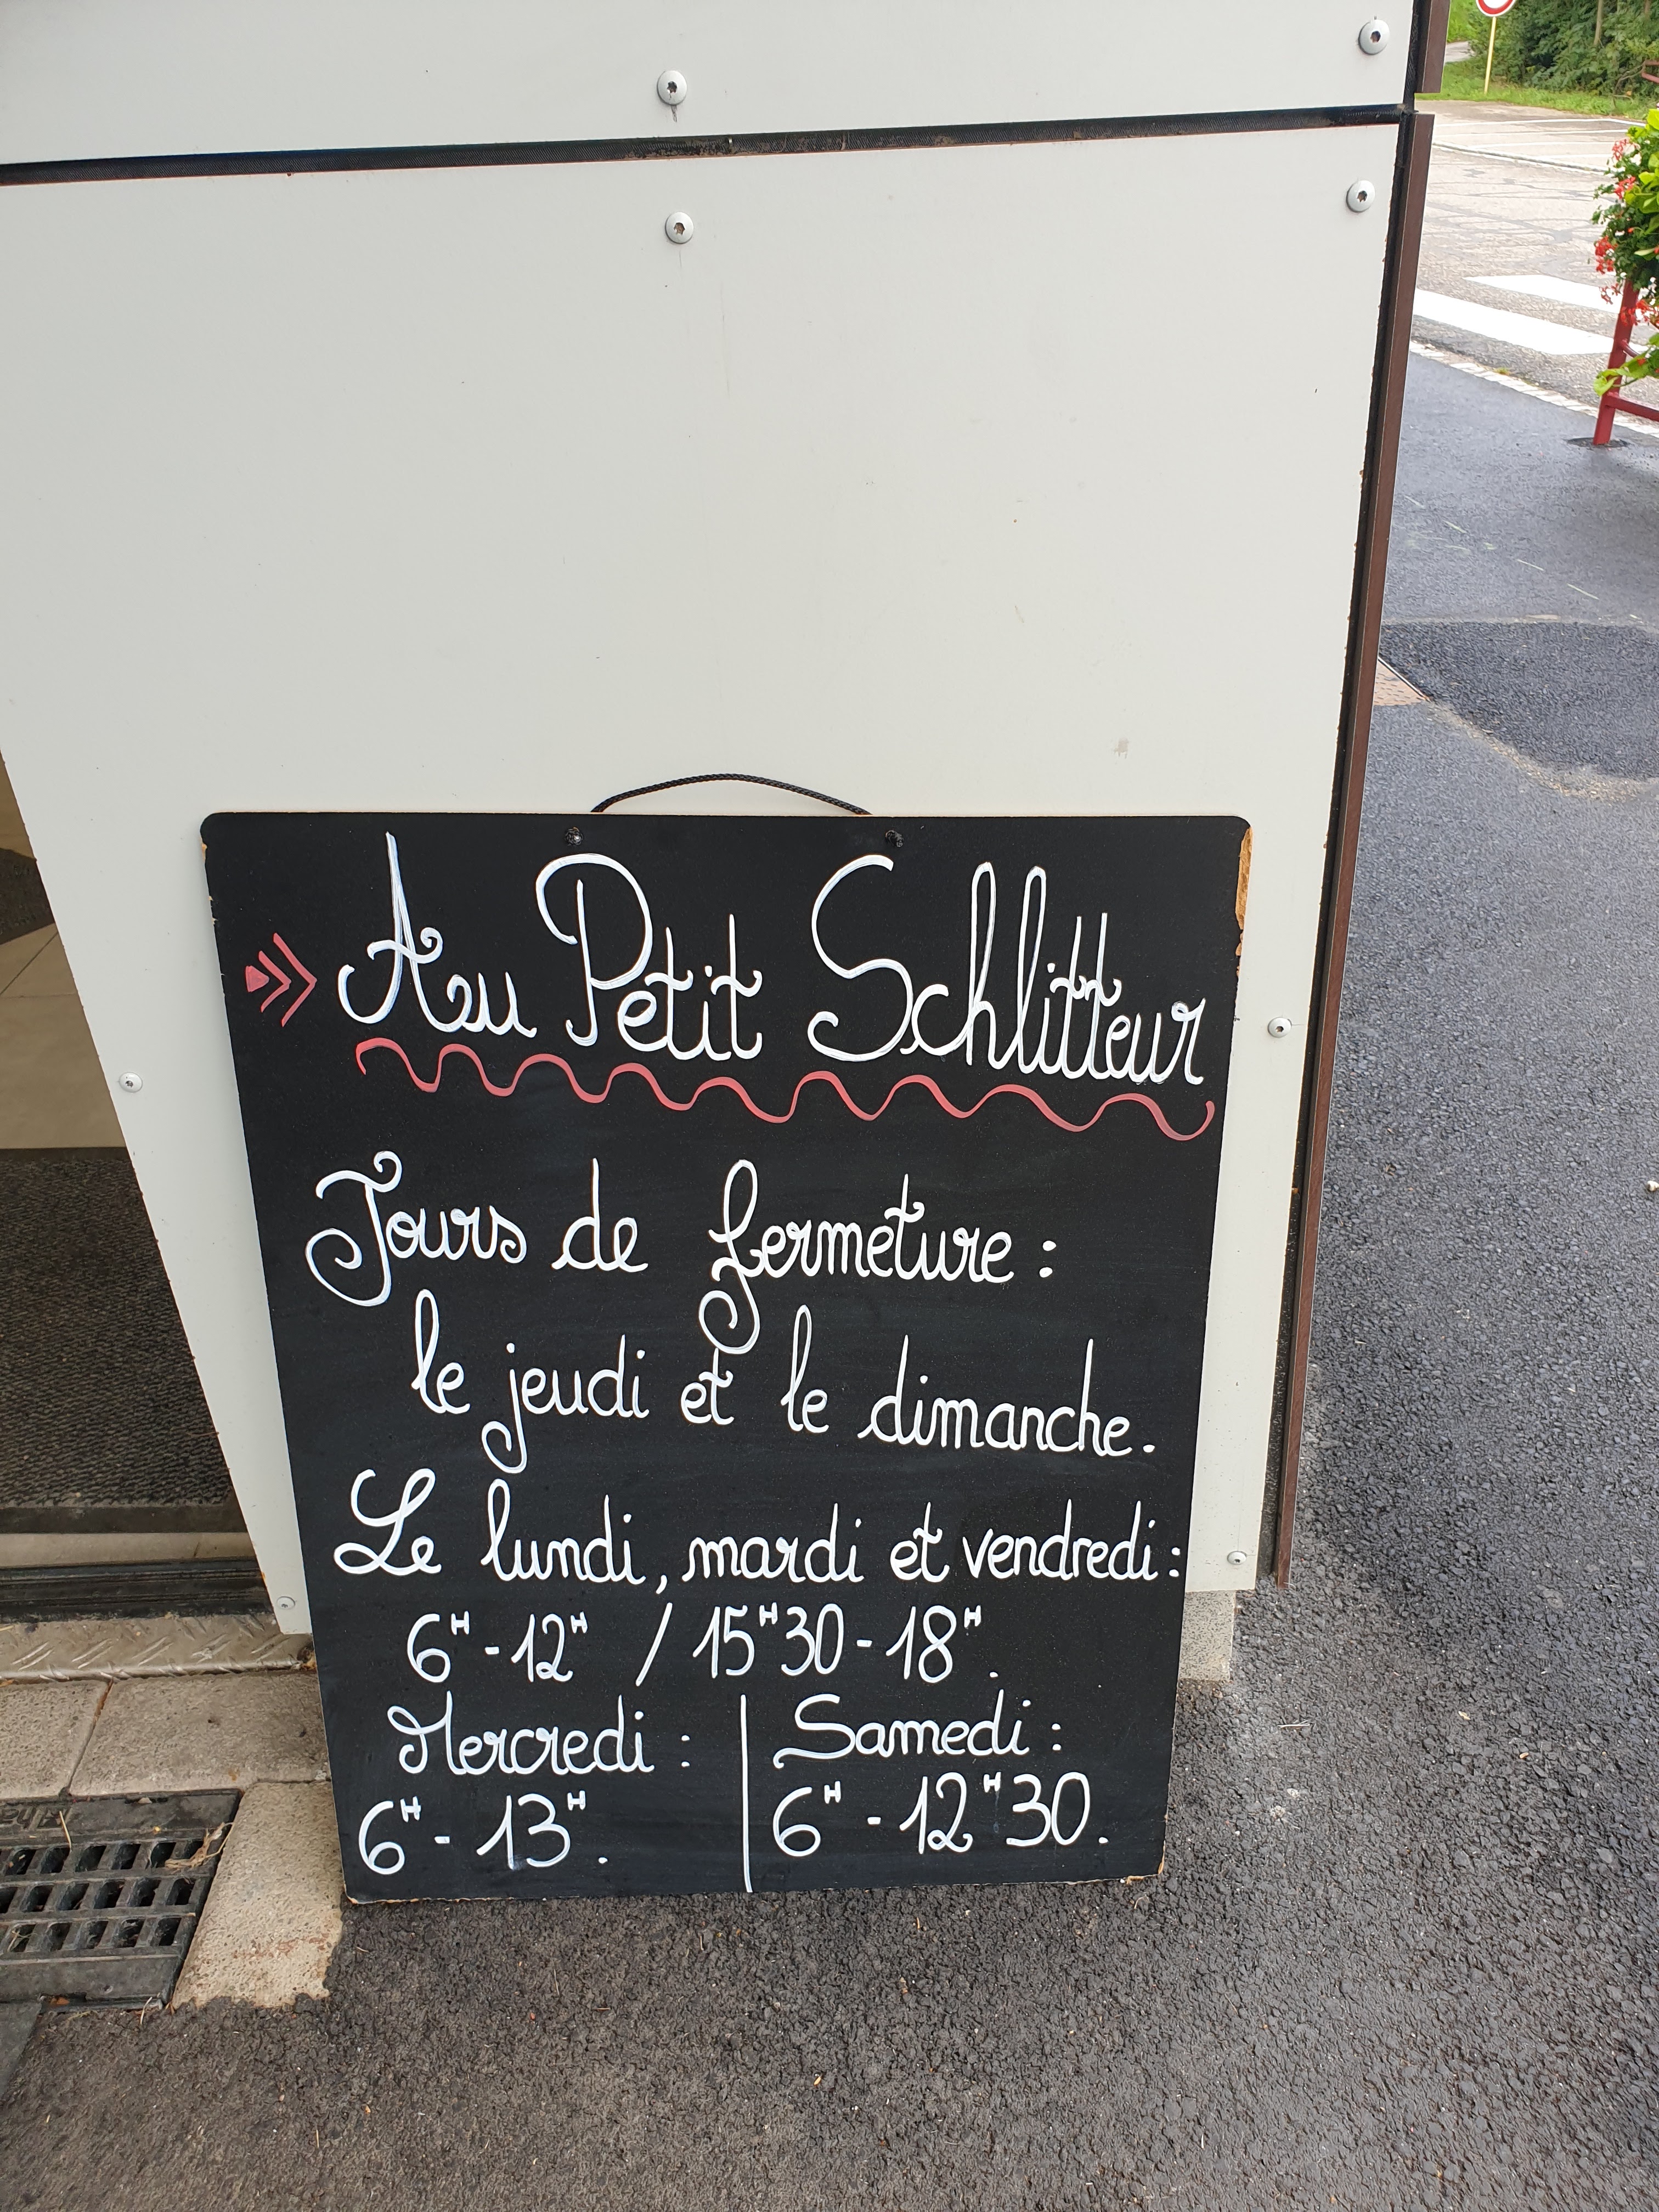 Au Petit Schlitteur
Jours de fermeture :
le jeudi et le dimanche.
Le lundi, mardi et vendredi :
6H - 12H / 15H30 - 18H.
Mercredi :
6H - 13H.
Samedi :
6H - 12H30.